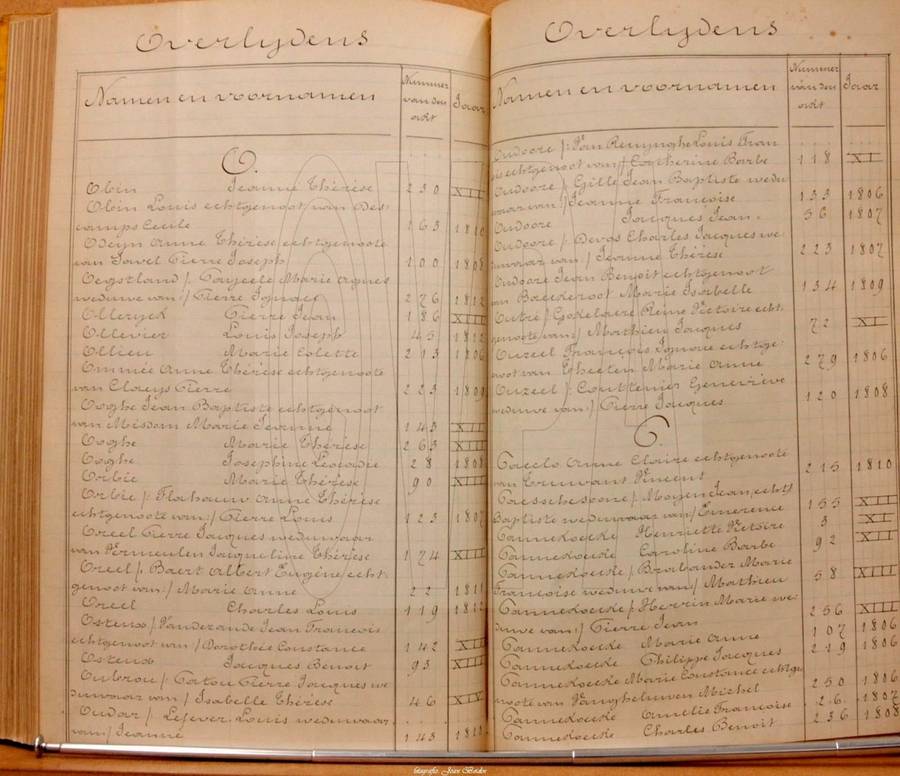 Overlydens
Namen en voornamen
Nummer van den acht
Jaar
O.
Obin Jeanne Thérèse 230 XII
Obin Louis echtgenoot van Des-
camps Cecile 163 1810
Odeyn Anne Thérèse echtgenoote
van Javel Pierre Joseph 100 1808
Marie Agnes
weduwe van / Pierre Ignace 276 1812
Olleryck Pierre Jean 186 XIII
Ollevier Louis Joseph 45 1812
Ollieu Marie Colette 213 1806
Ommée Anne Thérèse echtgenoote
van Claeys Pierre 223 1809
Ooghe Jean Baptiste echtgenoot
van Misdom Marie Jeanne 143 XII
Ooghe Marie Thérèse 263 XIII
Ooghe Josephine Leocadie 28 1808
Orbie Marie Thérèse 90 XIII
Orbie / Flahauw Anne Thérèse
echtgenoote van / Pierre Louis 123 1807
Oreel Pierre Jacques weduwaar
van Vermeulen Jacqueline Thérèse 174 XIII
Oreel / Baert Albert Eugène echt-
genoot van / Marie Anne 22 1811
Oreel Charles Louis 119 1812
Ostens / Vanderande Jean Francois
echtgenoot van / Dorothée Constance 142 XII
Ostens Jacques Benoit 93 XIII
Oubrou / Catou Pierre Jacques we-
duwaar van / Isabelle Thérèse 46 XIV
Oudar / Lefever Louis weduwaar
van / Jeanne 143 1811
Overlydens
Namen en voornamen
Nummer van den acht
Jaar
Oudoore / Van Remynghe Louis Fran
echtgenoot van / Catherine Barbe 118 XI
Oudoore / Gille Jean Baptiste wedu
waar van / Jeanne Françoise 133 1806
Oudoore Jacques Jean 56 1807
Oudoore / Devos Charles Jacques we-
duwaar van / Jeanne Thérèse 223 1807
Oudoore Jean Benoit echtgenoot
van Baeckeroot Marie Isabelle 134 1809
Outré / Godelaire Reine Victoire echt-
genoote van / Mathieu Jacques 72 XI
Ouzeel François Ignace echtge-
noot van Marie Anne 279 1806
Ouzeel / Couttenier Geneviève
weduwe van / Pierre Jacques 120 1808
P.
Anne Claire echtgenoote
van Vincent 215 1810
Jean echt
Baptiste weduwaar van / Emerence 155 XII
Pannekoecke Henriette Victoire 3 XI
Pannekoecke Caroline Barbe 92 XII
Pannekoecke / Brabander Marie
Françoise weduwe van / Mathieu 58 XIII
Pannekoecke / Herrin Marie we-
duwe van / Pierre Jean 256 XIII
Pannekoecke Marie Anne 107 1806
Pannekoecke Philippe Jacques 219 1806
Pannekoecke Marie Constance echtge
noote van Vangheluwen Michel 250 1806
Pannekoecke Amelie Françoise 26 1807
Pannekoecke Charles Benoit 236 1808
fotografie: Joan Bolden